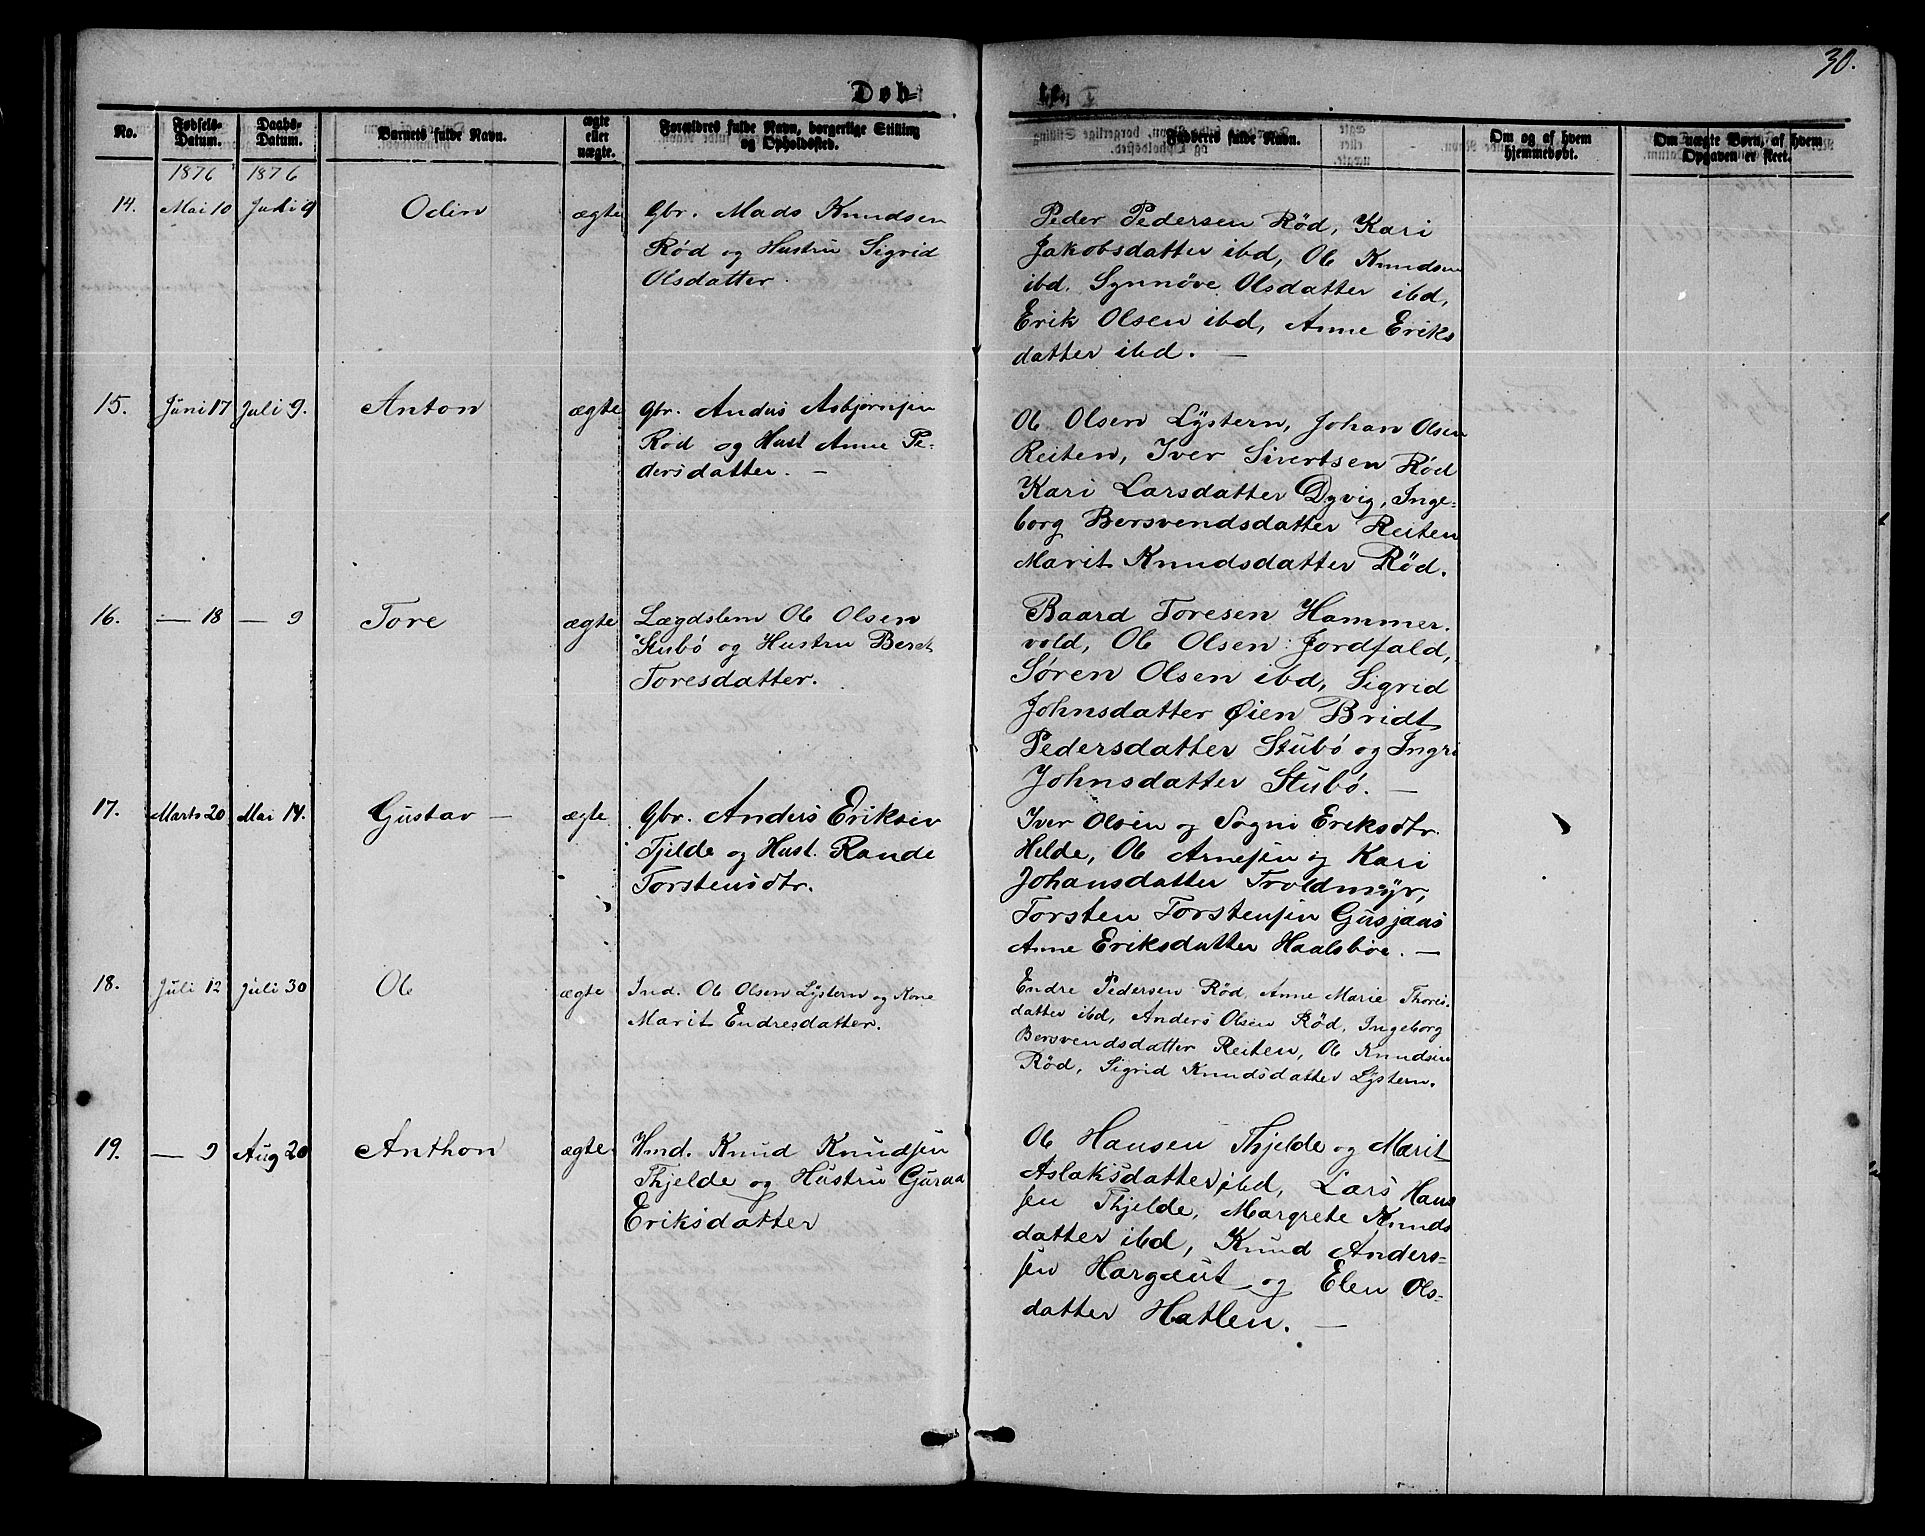 30.
Døb-
No.
Fødsels-
Datum.
Daabs-
Datum.
Barnets fulde Navn.
ægte
eller
uægte.
Forældres fulde Navn, borgerlige Stilling
og Opholdssted.
Fadderes fulde Navn.
Om og af hvem
hjemmedøbt.
Om uægte Børn, af hvem
Opgaven er skeet.
1876 1876
14. Mai 10 Juli 9 Odin ægte
Gbr. Mads Knudsen
Rød og Hustru Sigrid
Olsdatter.
Peder Pedersen Rød, Kari
Jakobsdatter ibd, Ole Knudsen
ibd. Synnøve Olsdatter ibd,
Erik Olsen ibd, Anne Eriks
datter ibd. —
15. Juni 17 Juli 9. Anton ægte
Gbr. Anders Asbjørnsen
Rød og Hust Anne Pe-
dersdatter. —
Ole Olsen Lystern, Johan Olsen
Reiten, Iver Sivertsen Rød
Kari Larsdatter Dyvig, Inge-
borg Bersvendsdatter Reiten
Marit Knudsdatter Rød.
16. — 18 — 9 Tore ægte
Lægdslem Ole Olsen
Stubø og Hustru Beret
Toresdatter.
Baard Toresen Hammer-
vold, Ole Olsen Jordfald,
Søren Olsen ibd, Sigrid
Johnsdatter Øien Bridt
Pedersdatter Stubø og Ingri
Johnsdatter Stubø. —
17. Marts 20 Mai 14. Gustav — ægte
Gbr. Anders Eriksen
Tjelde og Hust. Rande
Torstensdtr.
Iver Olsen og Sogni Eriksdtr.
Helde, Ole Arnesen og Kari
Johansdatter Troldmyr,
Torsten Torstensen Gusjaas
Anne Eriksdatter Haalsbøe. —
18. Juli 12 Juli 30 Ole ægte
Ind. Ole Olsen Lystern og Kone
Marit Endresdatter.
Endre Pedersen Rød, Anne Marie Thores-
datter ibd, Anders Olsen Rød, Ingeborg
Bersvendsdatter Reiten, Ole Knudsen
Rød, Sigrid Knudsdatter Lystern.
19. — 9 Aug 20 Anthon ægte
Hmd. Knud Knudsen
Thjelde og Hustru Guraa
Eriksdatter
Ole Hansen Thjelde og Marit
Aslaksdatter ibd, Lars Han
sen Thjelde, Margrete Knuds
datter ibd, Knud Anders-
sen Hargaut og Elen Ols-
datter Hatlen. —